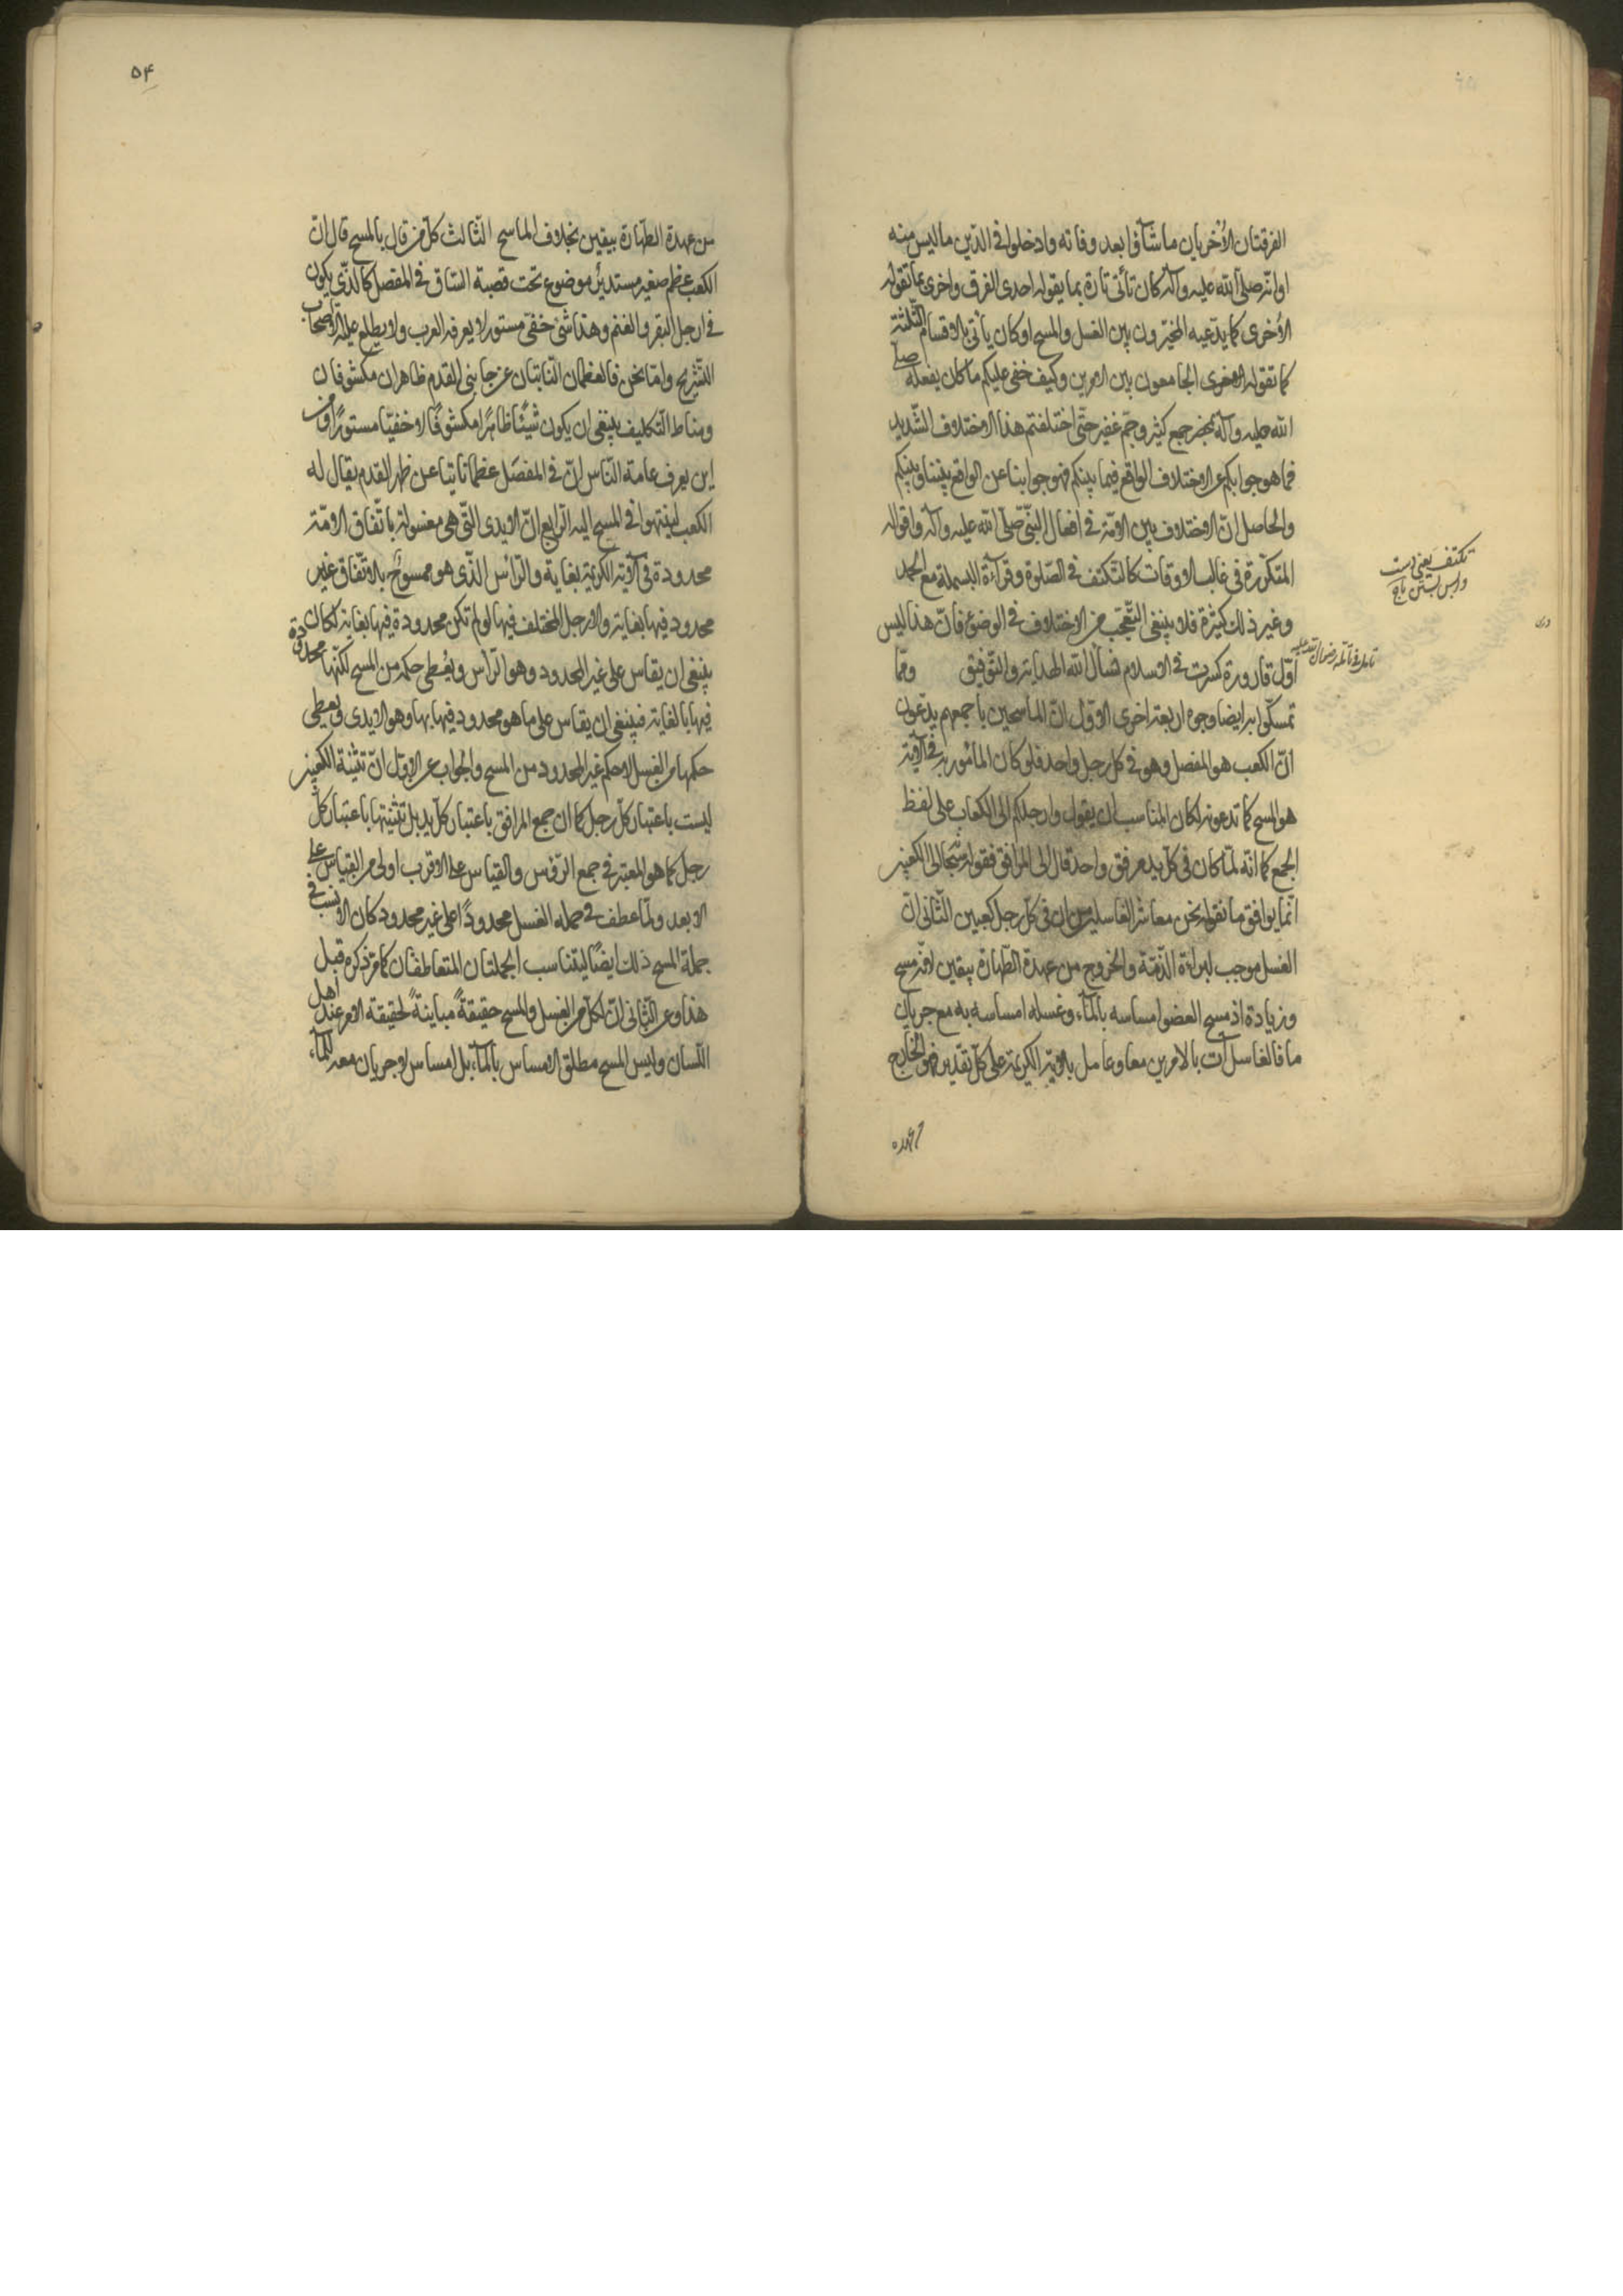 الفرقتان الأخريان ما شاؤا بعد وفاته وادخلوا في الدّين ما ليس منه
او انّه صلّى الله عليه وآله كان تأتى تارة بما يقوله احدى الفرق واخرى بما تقوله
الأخرى كما يدّعيه المخيّرون بين الغسل والمسح او كان يأتى بالاقسام الثلثة
كما تقوله الاخرى الجامعون بين الامرين وكيف خفى عليكم ما كان يفعله صلّى
الله عليه وآله بمحضر جمع كثير وجمّ غفير حتّى اختلفتم هذا الاختلاف الشّديد
فما هو جوابكم عن الاختلاف الواقع فيما بينكم فهو جوابنا عن الواقع بيننا وبينكم
والحاصل انّ الاختلاف بين الامّة في افعال النبيّ صلّى الله عليه وآله واقواله
المتكرّرة في غالب الاوقات كالتكتف في الصّلوة وقراءة البسملة مع الحمد
وغير ذلك كثيرة فلا ينبغى التّعجّب من الاختلاف في الوضوء فانّ هذا ليس
اوّل قارورة كسرت في الاسلام نسأل الله الهداية والتوفيق وممّا
تمسكّوا به ايضا وجوه اربعة اخرى الاوّل انّ الماسحين باجمعهم يدّعون
انّ الكعب هو المفصل وهو في كل رجل واحد فلو كان المأمور به في الآية
هو المسح كما تدعونه لكان المناسب ان يقول وارجلكم الى الكعاب على لفظ
الجمع كما انّه لمّا كان في كلّ يد مرفق واحد قال الى المرافق فقوله سبحانه الى الكعبين
انّما يوافق ما نقوله نحن معاشر الغاسلين من ان في كلّ رجل كعبين الثّانى انّ
الغسل موجب لبراءة الذّمّة والخروج من عهدة الطّهارة بيقين لانّه مسح
وزيادة اذ مسح العضو امساسه بالمآء وغسله امساسه به مع جريان
ما فالغاسل آت بالامرين معا وعامل بالآية الكريمة على كلّ تقدير فهو الخارج
من عهدة
تكتف يعنى دست
واپس بستن
۵۴
من عهدة الطهارة بيقين بخلاف الماسح الثّالث كلّ من قال بالمسح قال انّ
الكعب عظم صغير مستدير موضوع تحت قصبة السّاق في المفصل كالذّى يكون
في ارجل البقر والغنم وهذا شئ خفىّ مستور لا يعرفه العرب ولا يطلع عليه الا اصحاب
التّشريح وامّا نحن فالعظمان النّاتئان عن جانبى القدم ظاهران مكشوفان
ومناط التّكليف ينبغى ان يكون شيئًا ظاهرًا مكشوفًا لا خفيّا مستورًا ومن
اين يعرف عامة النّاس انّ في المفصل عظما ناتيا عن ظهر القدم يقال له
الكعب لينتهوا في المسح اليه الرّابع انّ الايدى الّتى هى مغسولة باتّفاق الامّة
محدودة في الآية الكريمة بغاية والرّأس الّذى هو ممسوح بالاتّفاق غير
محدود فيها بغاية والارجل المختلف فيها لو لم تكن محدودة فيها بغاية لكان
ينبغى ان يقاس على غير المحدود وهو الرّاس ويُعطى حكمه من المسح لكنّها محدودة
فيها بالغاية فينبغى ان يقاس على ما هو محدود فيها بها وهو الايدى ويعطى
حكمها من الغسل لا حكم غير المحدود من المسح والجواب عن الاوّل انّ تثنية الكعبين
ليست باعتبار كلّ رجل كما ان جمع المرافق باعتبار كلّ يد بل تثنيتها باعتبار كلّ
رجل كما هو المعتبر في جمع الرّؤس والقياس على الاقرب اولى من القياس على
الابعد ولمّا عطف في جملة الغسل محدودًا على غير محدود كان الانسب في
جملة المسح ذلك ايضًا ليتناسب الجملتان المتعاطفتان كما مرّ ذكره قبل
هذا وعن الثّانى انّ لكلّ من الغسل والمسح حقيقةً مباينةً لحقيقة الآخر عند اهل
اللّسان وليس المسح مطلق الامساس بالمآء بل امساس لا جريان معه للمآء